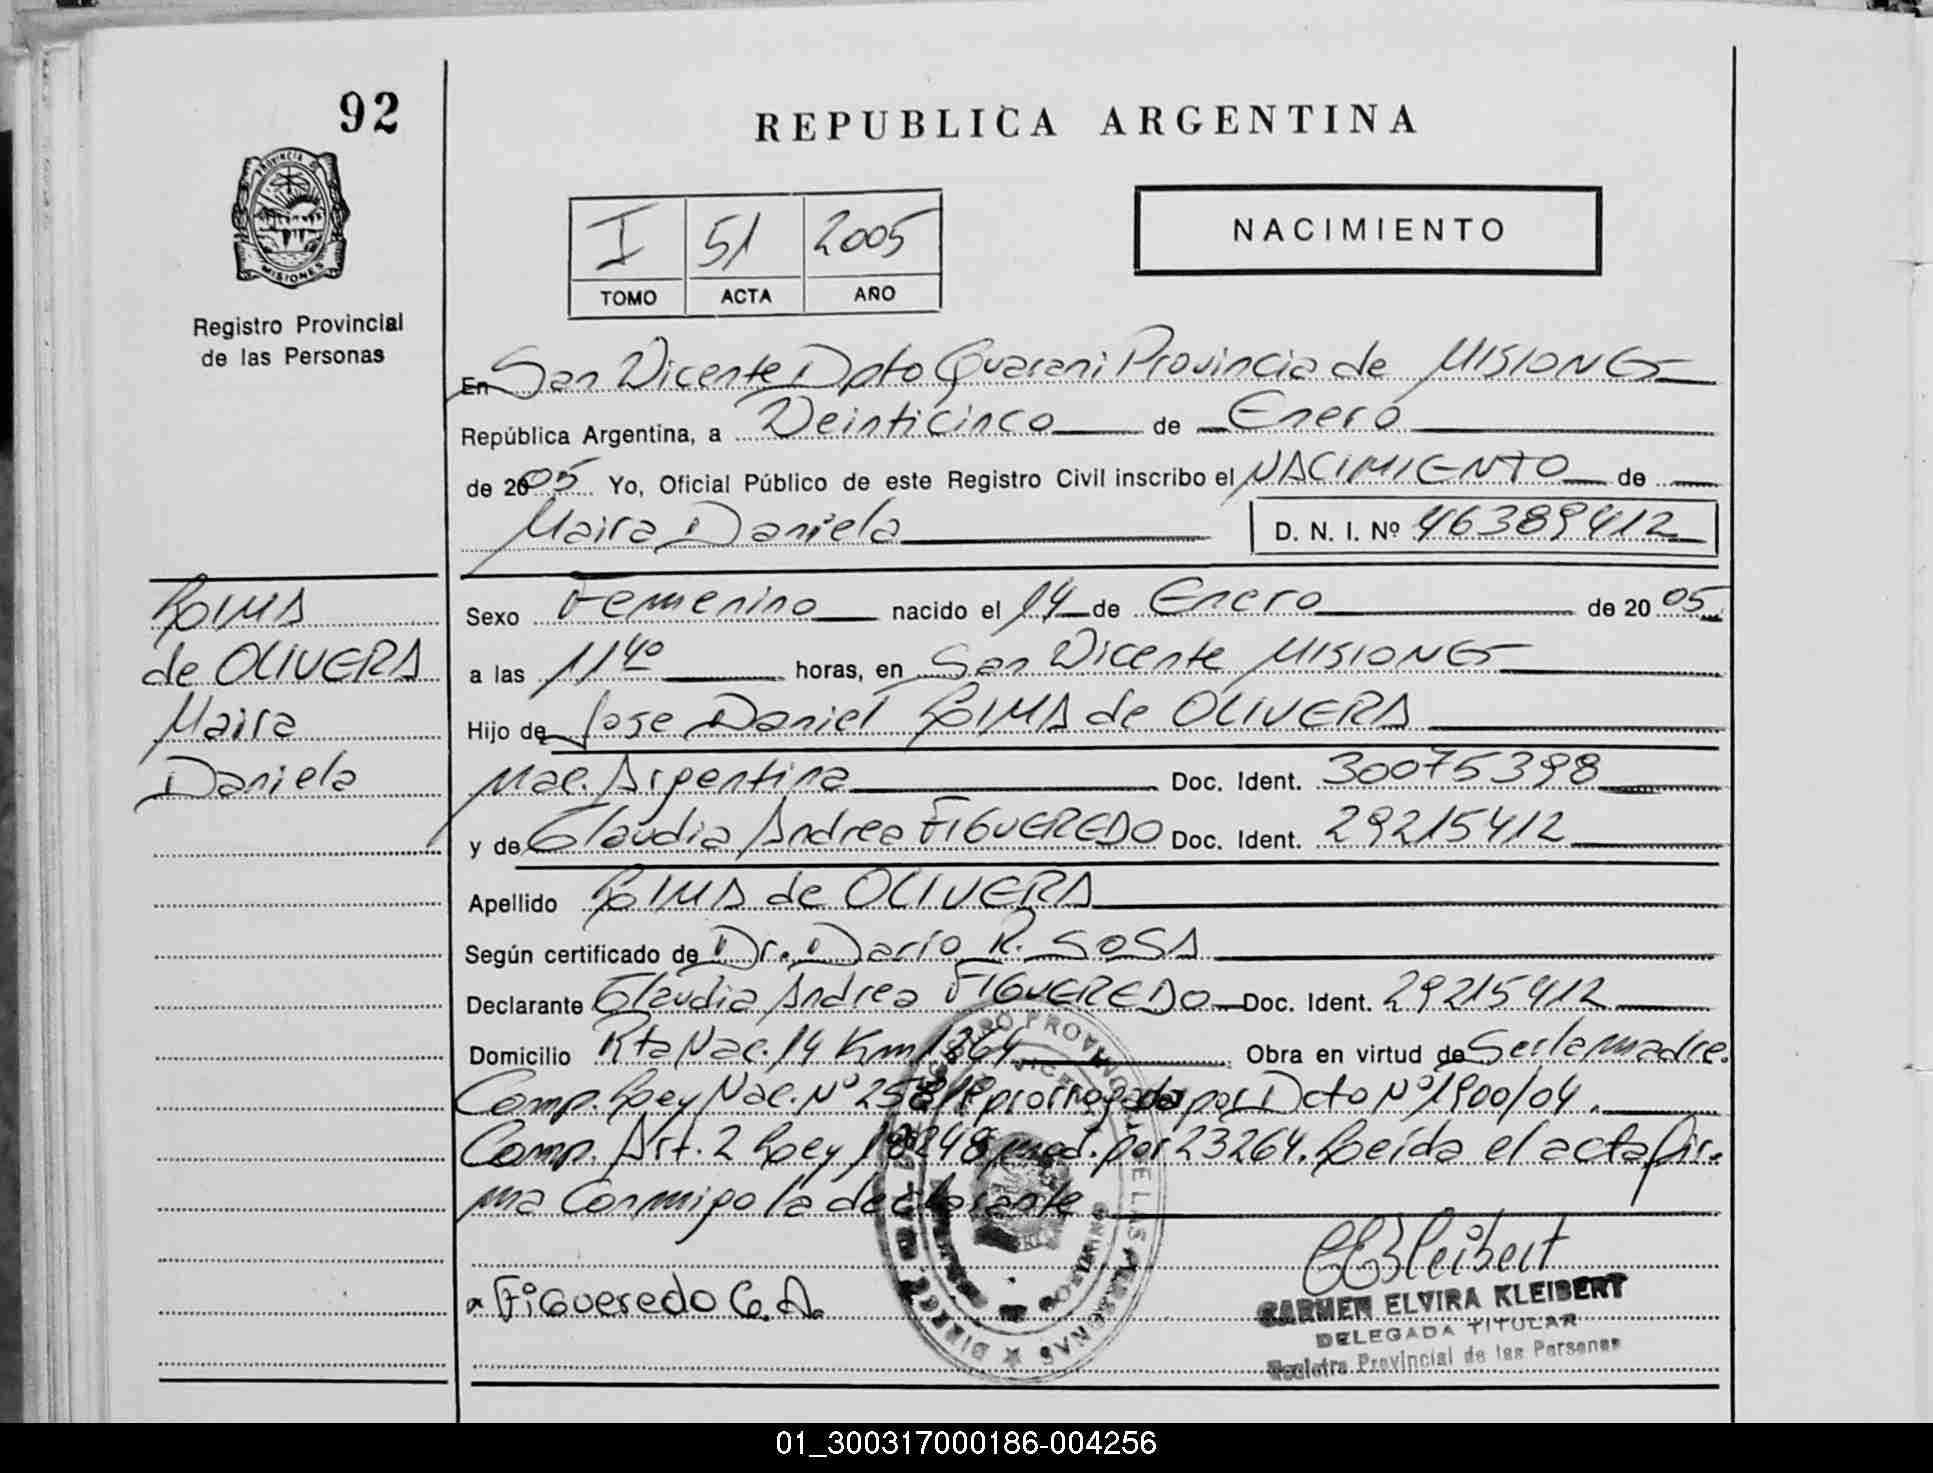 92
REPUBLICA ARGENTINA
PROVINCIA DE
MISIONES
Registro Provincial
de las Personas
I 51 2005
TOMO ACTA AÑO
NACIMIENTO
En San Vicente Dpto Guarani Provincia de MISIONES
República Argentina, a Veinticinco de Enero
de 2005 Yo, Oficial Público de este Registro Civil inscribo el NACIMIENTO de
Maira Daniela D. N. I. Nº 46389412
LIMA
de OLIVERA
Maira
Daniela
Sexo Femenino nacido el 14 de Enero de 2005
a las 11 40 horas, en San Vicente MISIONES
Hijo de Jose Daniel LIMA de OLIVERA
Nac. Argentina Doc. Ident. 30075398
y de Claudia Andrea FIGUEREDO Doc. Ident. 29215412
Apellido LIMA de OLIVERA
Según certificado de Dr. Dario R. SOSA
Declarante Claudia Andrea FIGUEREDO Doc. Ident. 29215412
Domicilio Rta Nac. 14 Km 1364 Obra en virtud de Ser la madre.
Comp. Ley Nac. Nº prorrogada por Dcto Nº 1900/04.
Comp. Art. 2 Ley 18248 mod. por 23264. Leída el acta fir-
ma conmigo la declarante
Figueredo C. A.
CEKleibert
CARMEN ELVIRA KLEIBERT
DELEGADA TITULAR
Registro Provincial de las Personas
01_300317000186-004256